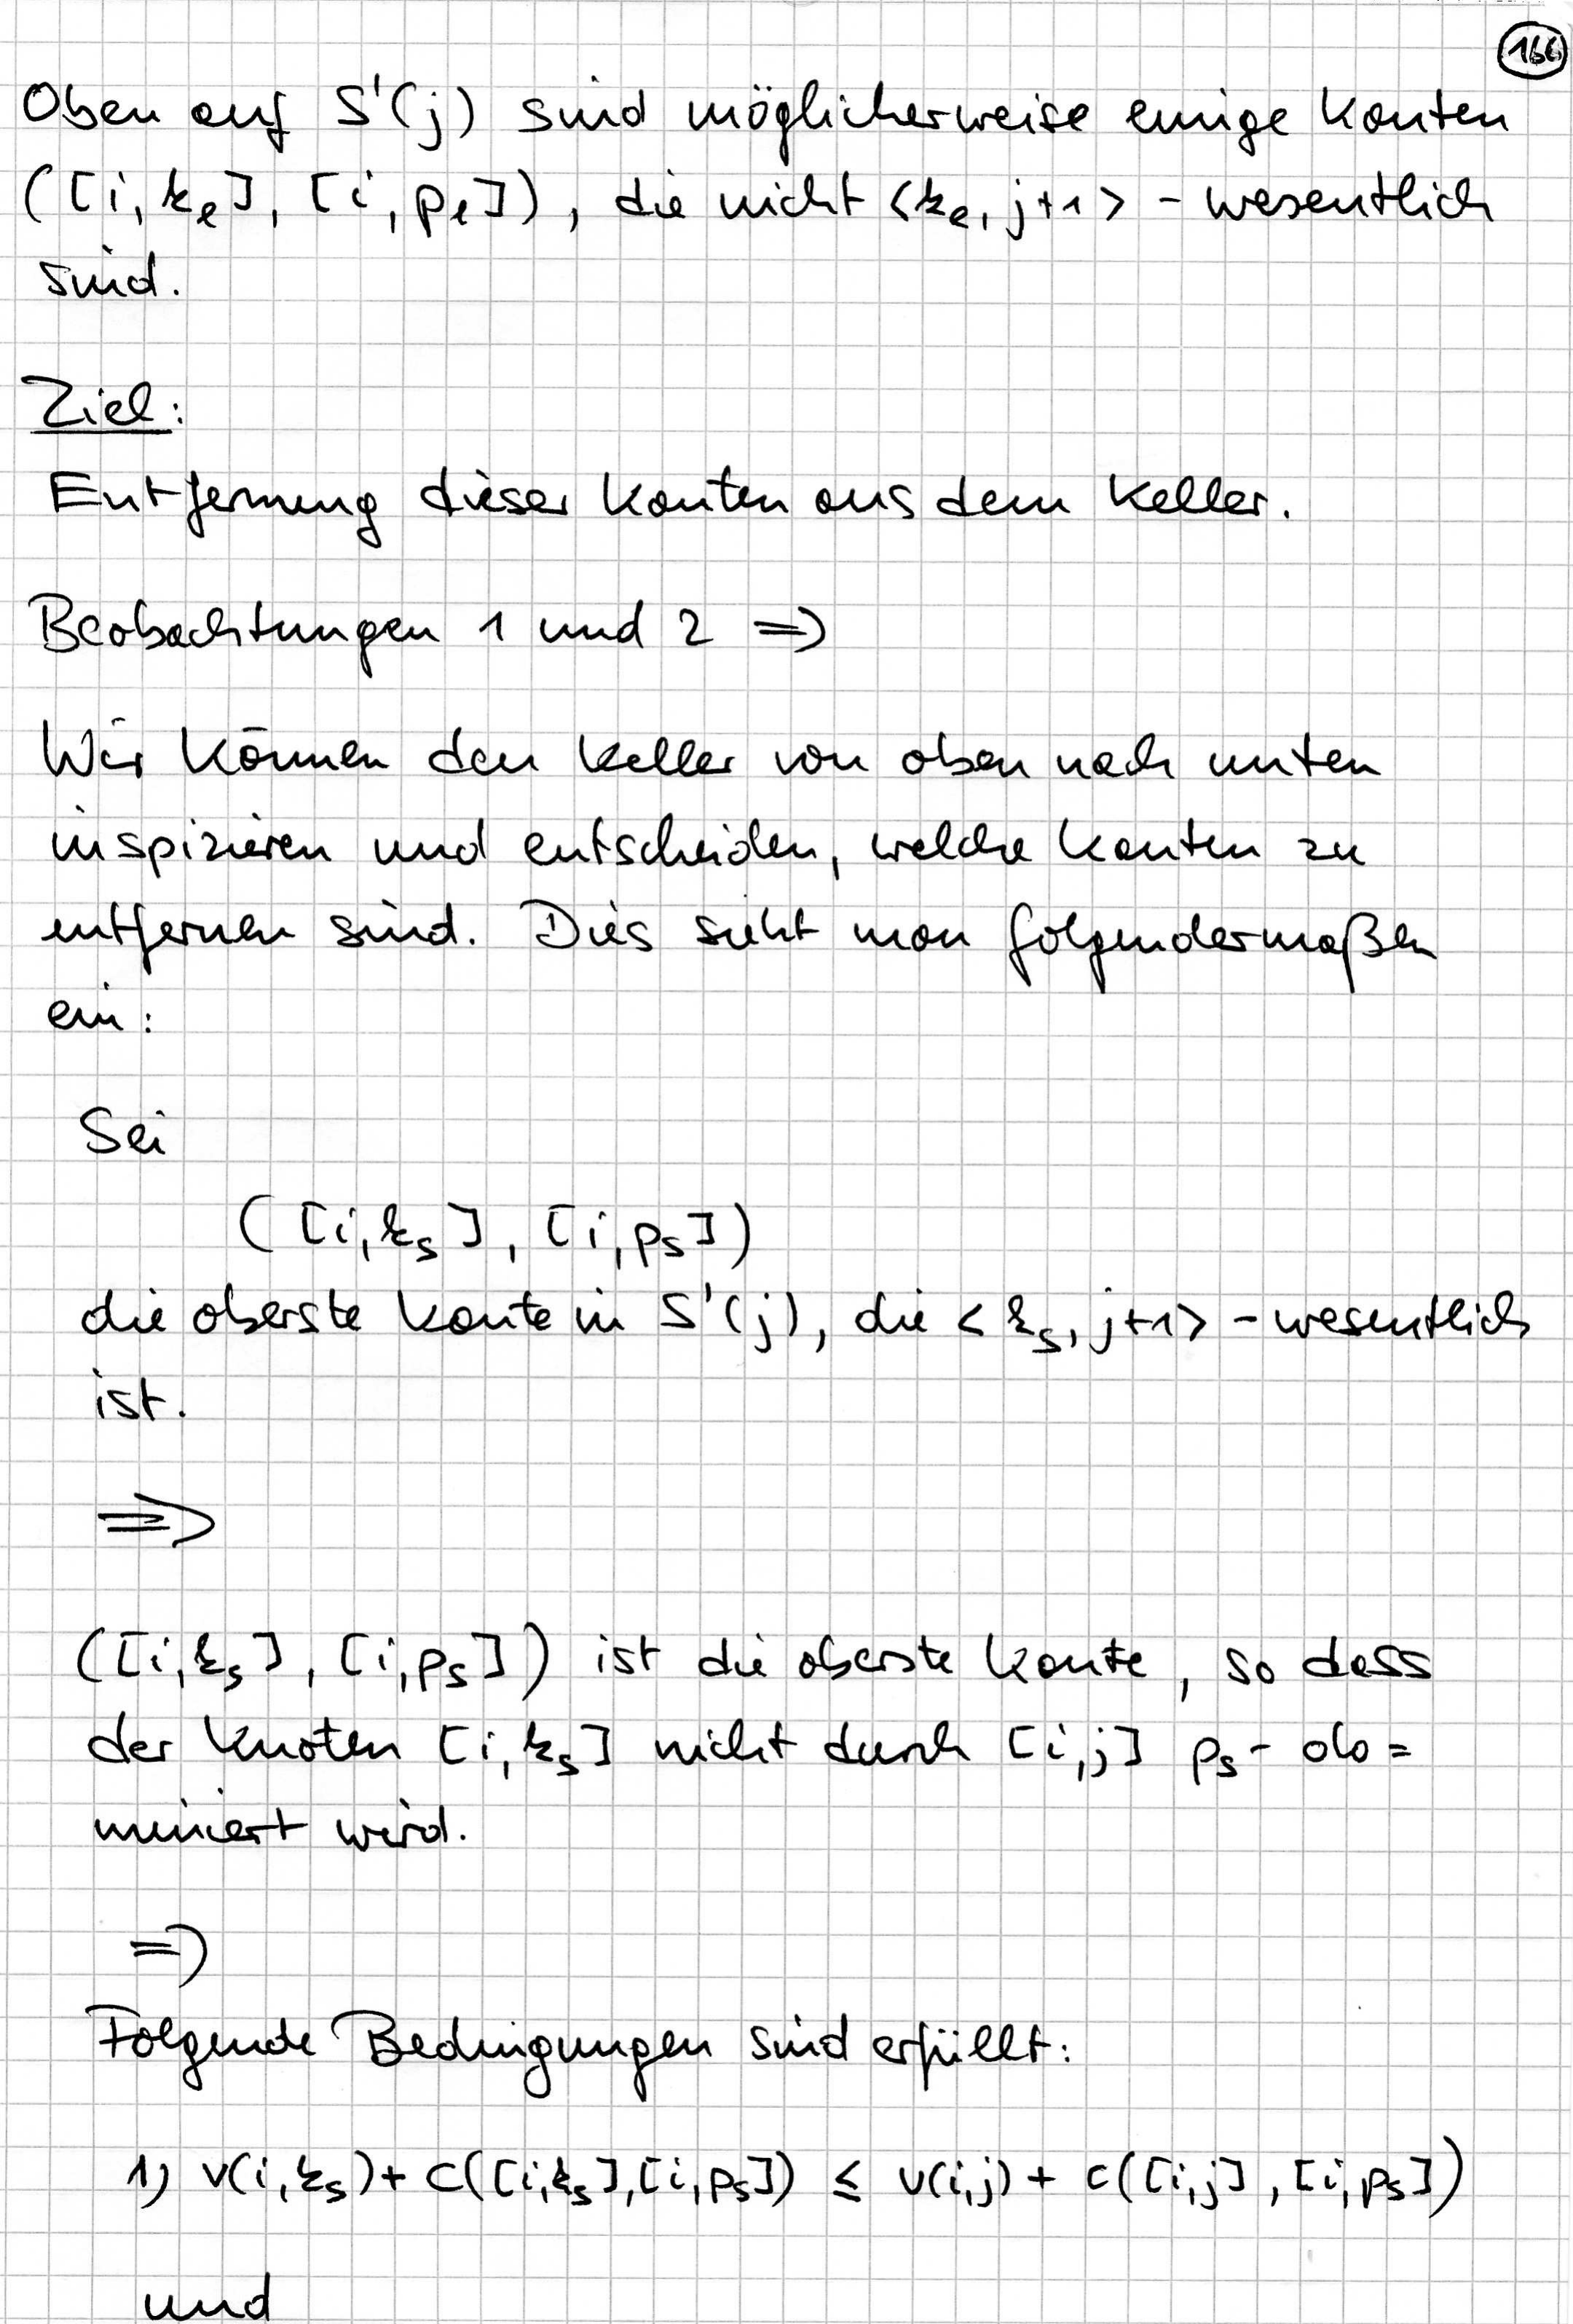 166
Oben auf S'(j) sind möglicherweise einige Kanten
([i,k_l], [i,p_l]), die nicht <k_l, j+1> - wesentlich
sind.
Ziel:
Entfernung dieser Kanten aus dem Keller.
Beobachtungen 1 und 2 =>
Wir können den Keller von oben nach unten
inspizieren und entscheiden, welche Kanten zu
entfernen sind. Dies sieht man folgendermaßen
ein:
Sei
([i,k_s], [i,p_s])
die oberste Kante in S'(j), die <k_s, j+1> - wesentlich
ist.
=>
([i,k_s], [i,p_s]) ist die oberste Kante, so dass
der Knoten [i,k_s] nicht durch [i,j] p_s - do=
miniert wird.
=>
Folgende Bedingungen sind erfüllt:
1) v(i,k_s) + c([i,k_s],[i,p_s]) ≤ v(i,j) + c([i,j],[i,p_s])
und